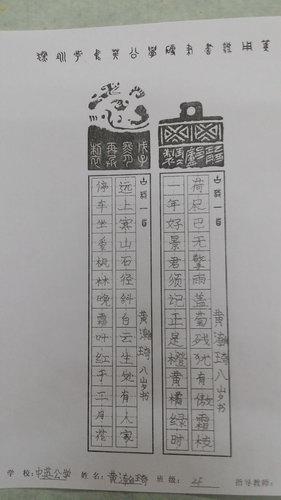 古诗一首
荷尽已无擎雨盖菊残犹有傲霜枝
一年好景君须记正是橙黄橘绿时
黄瀚琦八岁书
古诗一首
远上寒山石径斜白云生处有人家
停车坐爱枫林晚霜叶红于二月花
黄瀚琦八岁书
学校：中英公学 姓名：黄瀚琦 班级： 指导教师：